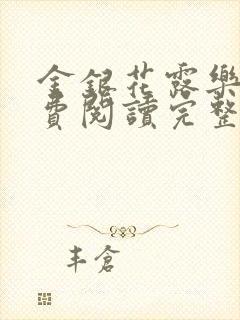 金銀花露樂
費閱讀完整
丰倉